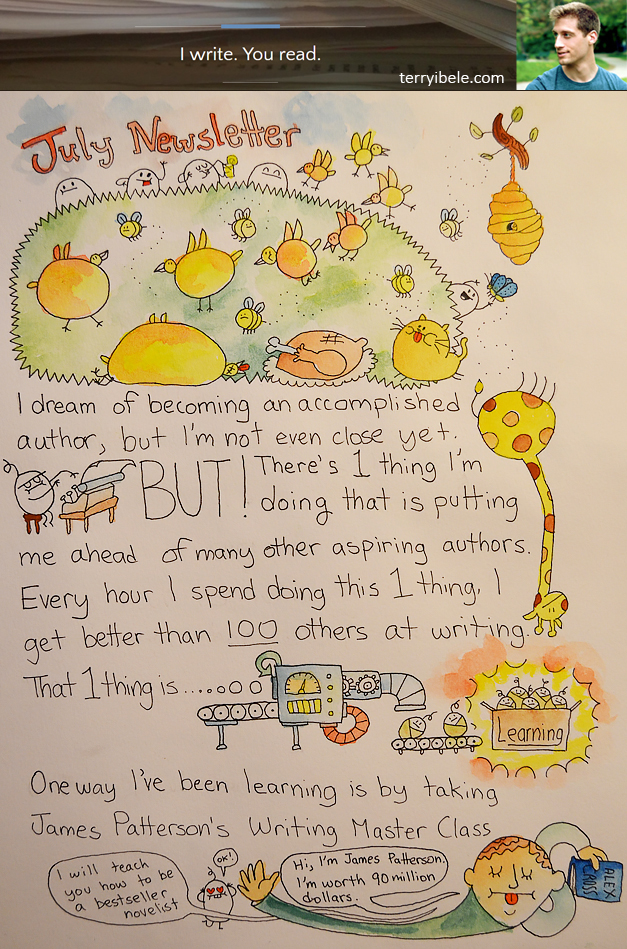 I write. You read.
terryibele.com
July Newsletter
I dream of becoming an accomplished
author, but I'm not even close yet.
BUT! There's 1 thing I'm
doing that is putting
me ahead of many other aspiring authors.
Every hour I spend doing this 1 thing, I
get better than 100 others at writing.
That 1 thing is.....ooo
Learning
One way I've been learning is by taking
James Patterson's Writing Master Class
I will teach
you how to be
a bestseller
novelist
OK!
Hi, I'm James Patterson.
I'm worth 90 million
dollars.
ALEX
CROSS